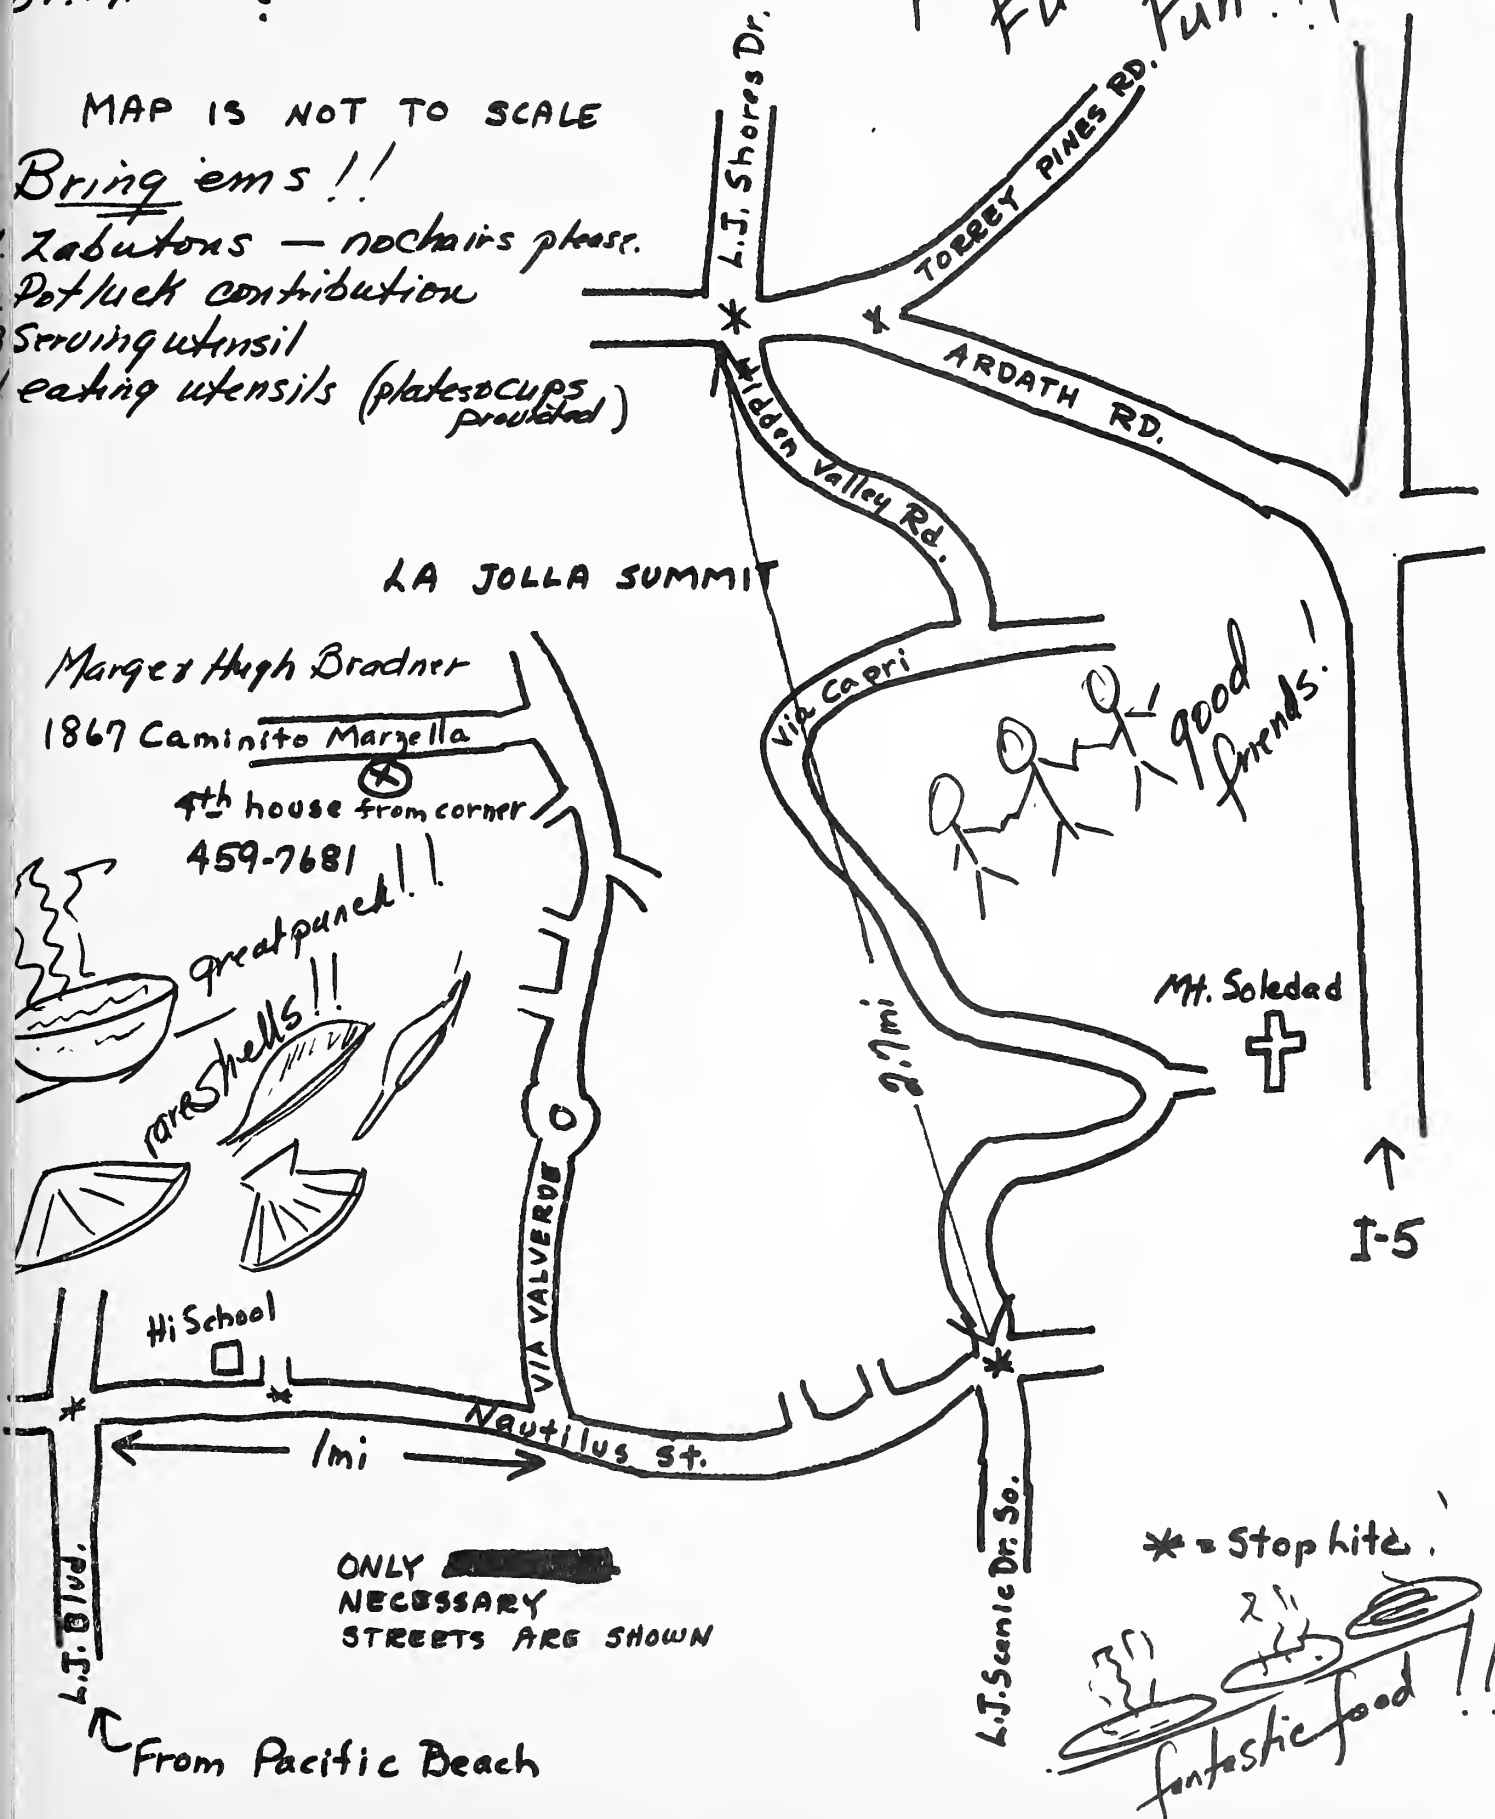 Fun!!
L.J. Shores Dr.
MAP IS NOT TO SCALE
Bring 'ems!!
Zabutons — no chairs please.
Potluck contribution
Serving utensil
eating utensils (plates & cups
provided)
TORREY PINES RD.
ARDATH RD.
Hidden Valley Rd.
LA JOLLA SUMMIT
Marge & Hugh Bradner
1867 Caminito Marzella
4th house from corner
459-7681
Via Capri
good
friends!
great punch!!
rare shells!!
2.7 mi
Mt. Soledad
I-5
VIA VALVERDE
Hi School
Nautilus St.
1 mi
L.J. Blvd.
From Pacific Beach
ONLY
NECESSARY
STREETS ARE SHOWN
L.J. Scenic Dr. So.
* = Stop Lite.
fantastic food!!